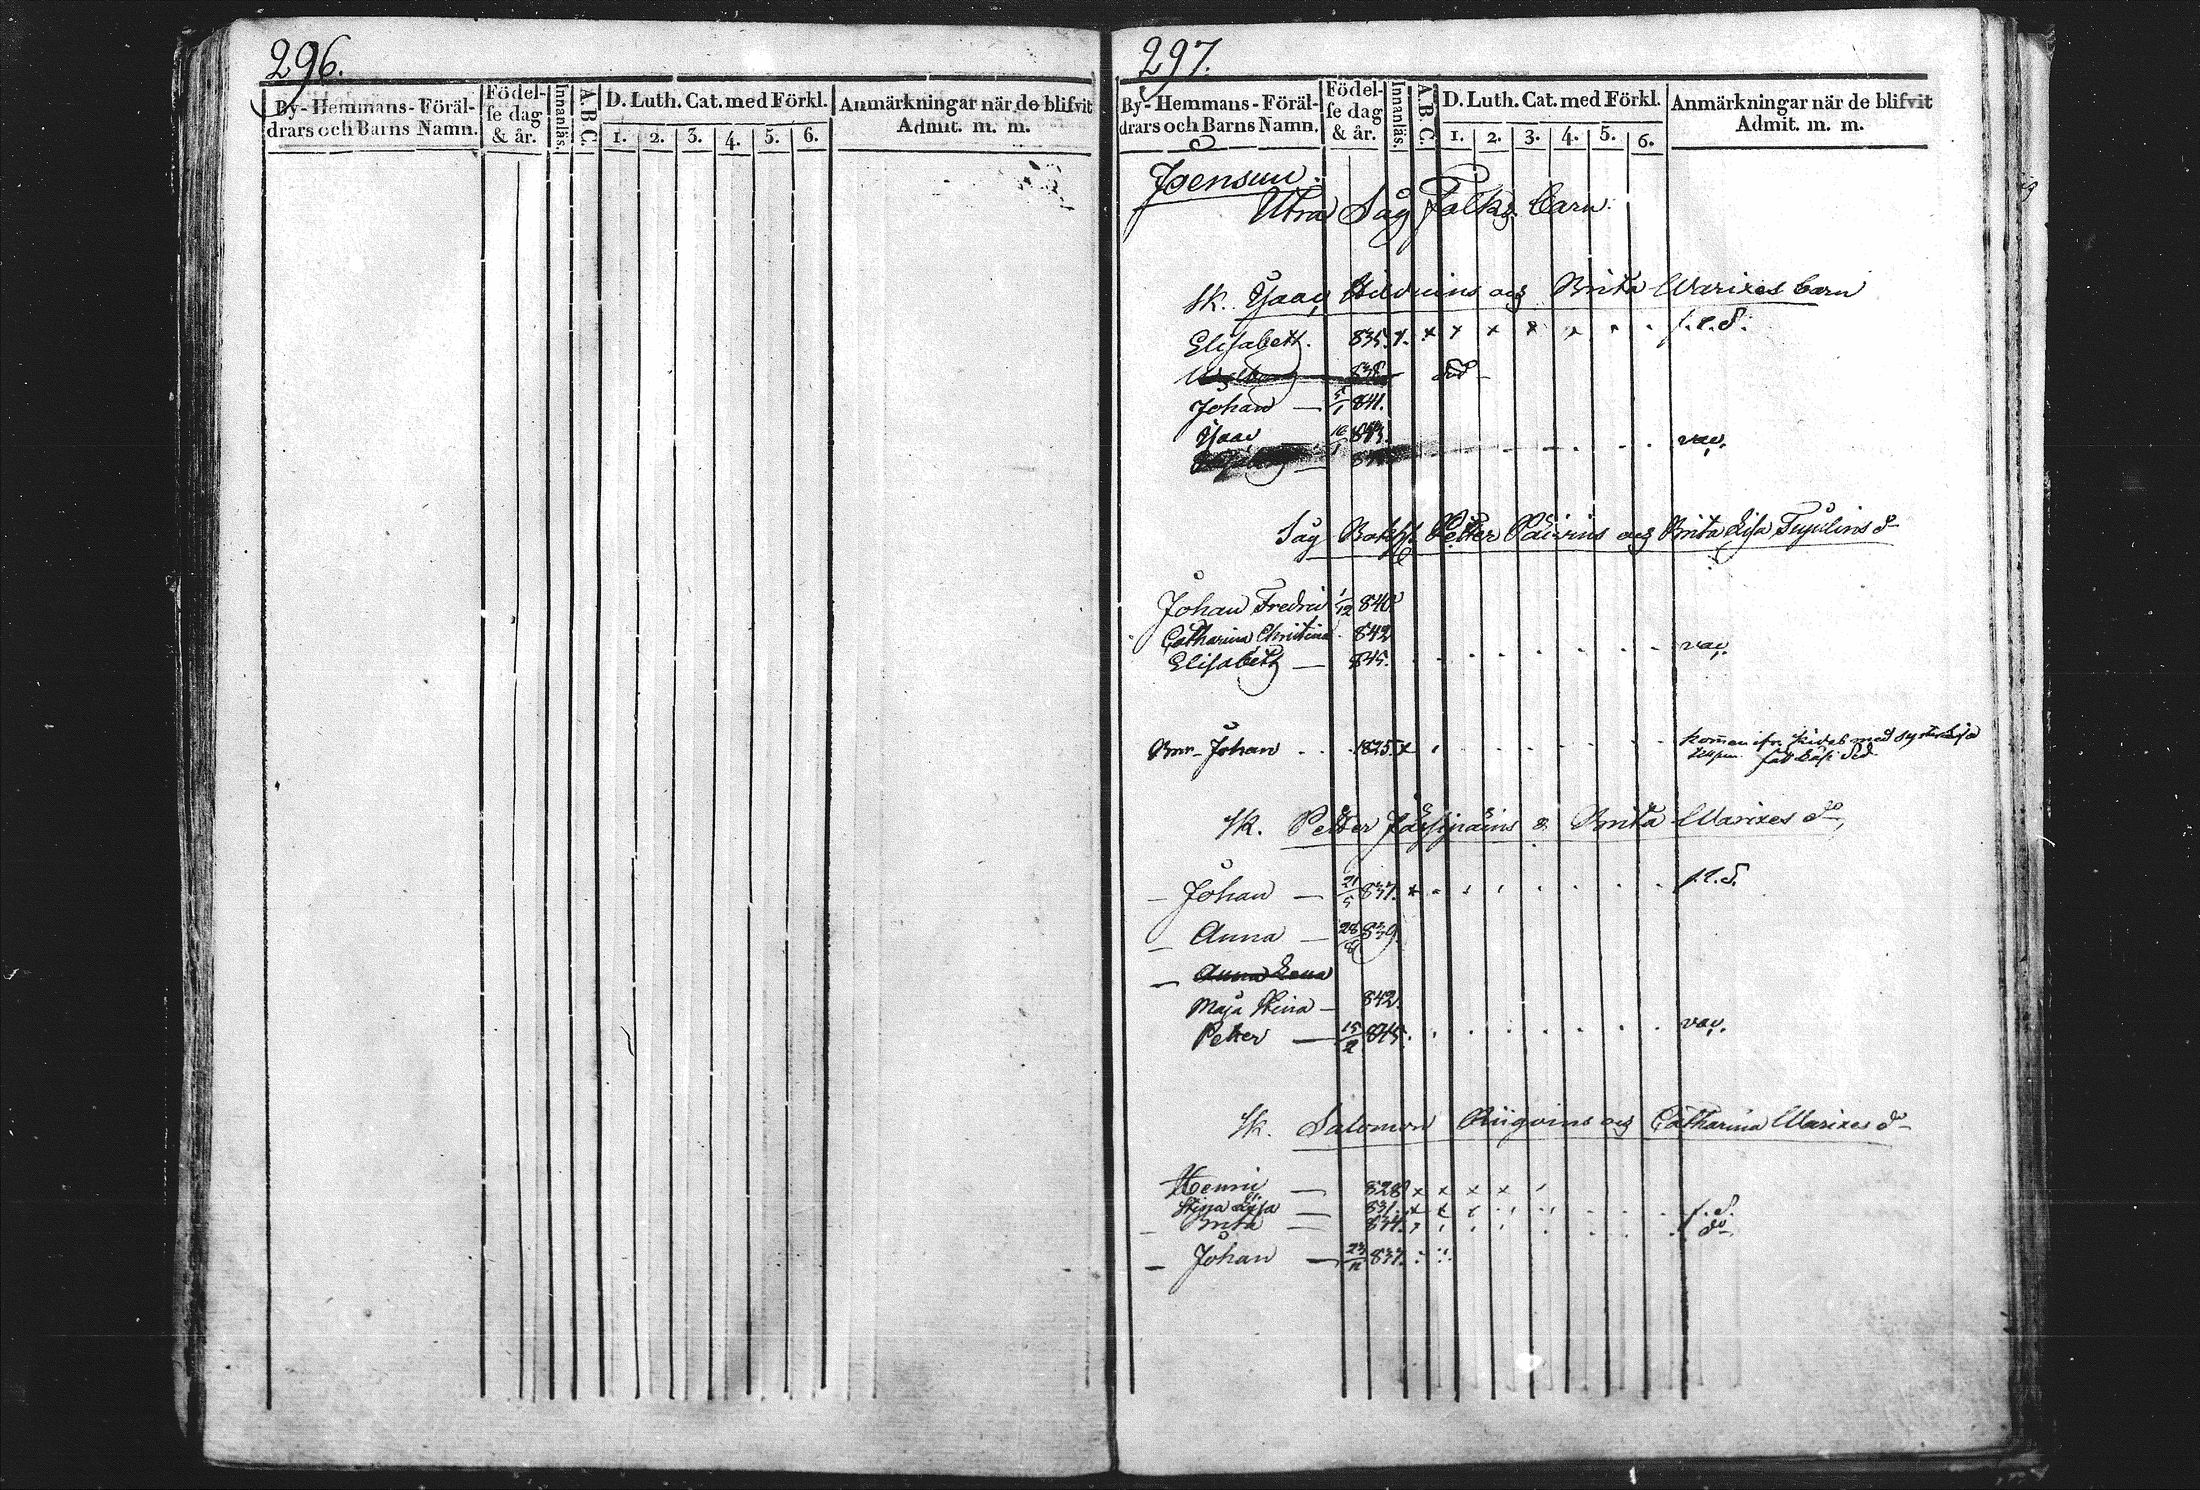 296.
By-Hemmans-Föräl-
drars och Barns Namn.
Födel-
se dag
& år.
Innanläs.
A. B. C.
D. Luth. Cat. med Förkl.
1. 2. 3. 4. 5. 6.
Anmärkningar när de blifvit
Admit. m. m.
297.
By-Hemmans-Föräl-
drars och Barns Namn.
Födel-
se dag
& år.
Innanläs.
A. B. C.
D. Luth. Cat. med Förkl.
1. 2. 3. 4. 5. 6.
Anmärkningar när de blifvit
Admit. m. m.
Joensuu
Utra Såg Folks barn.
Sk. Isaac och Brita Warixes barn
Elisabett. 835. x. x x x x x
838 död
Johan — 841.
Isaac 16/1 843.
vac.
Såg Petter Päivins och Brita Lisa d:o
Johan Fredric 1/12 840.
Catharina Christina 842
Elisabett — 845. vac.
Johan 1825. x
Sk. Petter & Brita Warixes d:o
— Johan — 21/5 837. x
— Anna — 28/8 839.
— Anna Lena
Maja Stina — 842.
Petter — 15/2 845. vac.
Sk. Salomon och Catharina Warixes d:o
Henric — 828 x x x x
Stina Lisa — 831. x x
— Brita — 834. d:o
— Johan — 837.